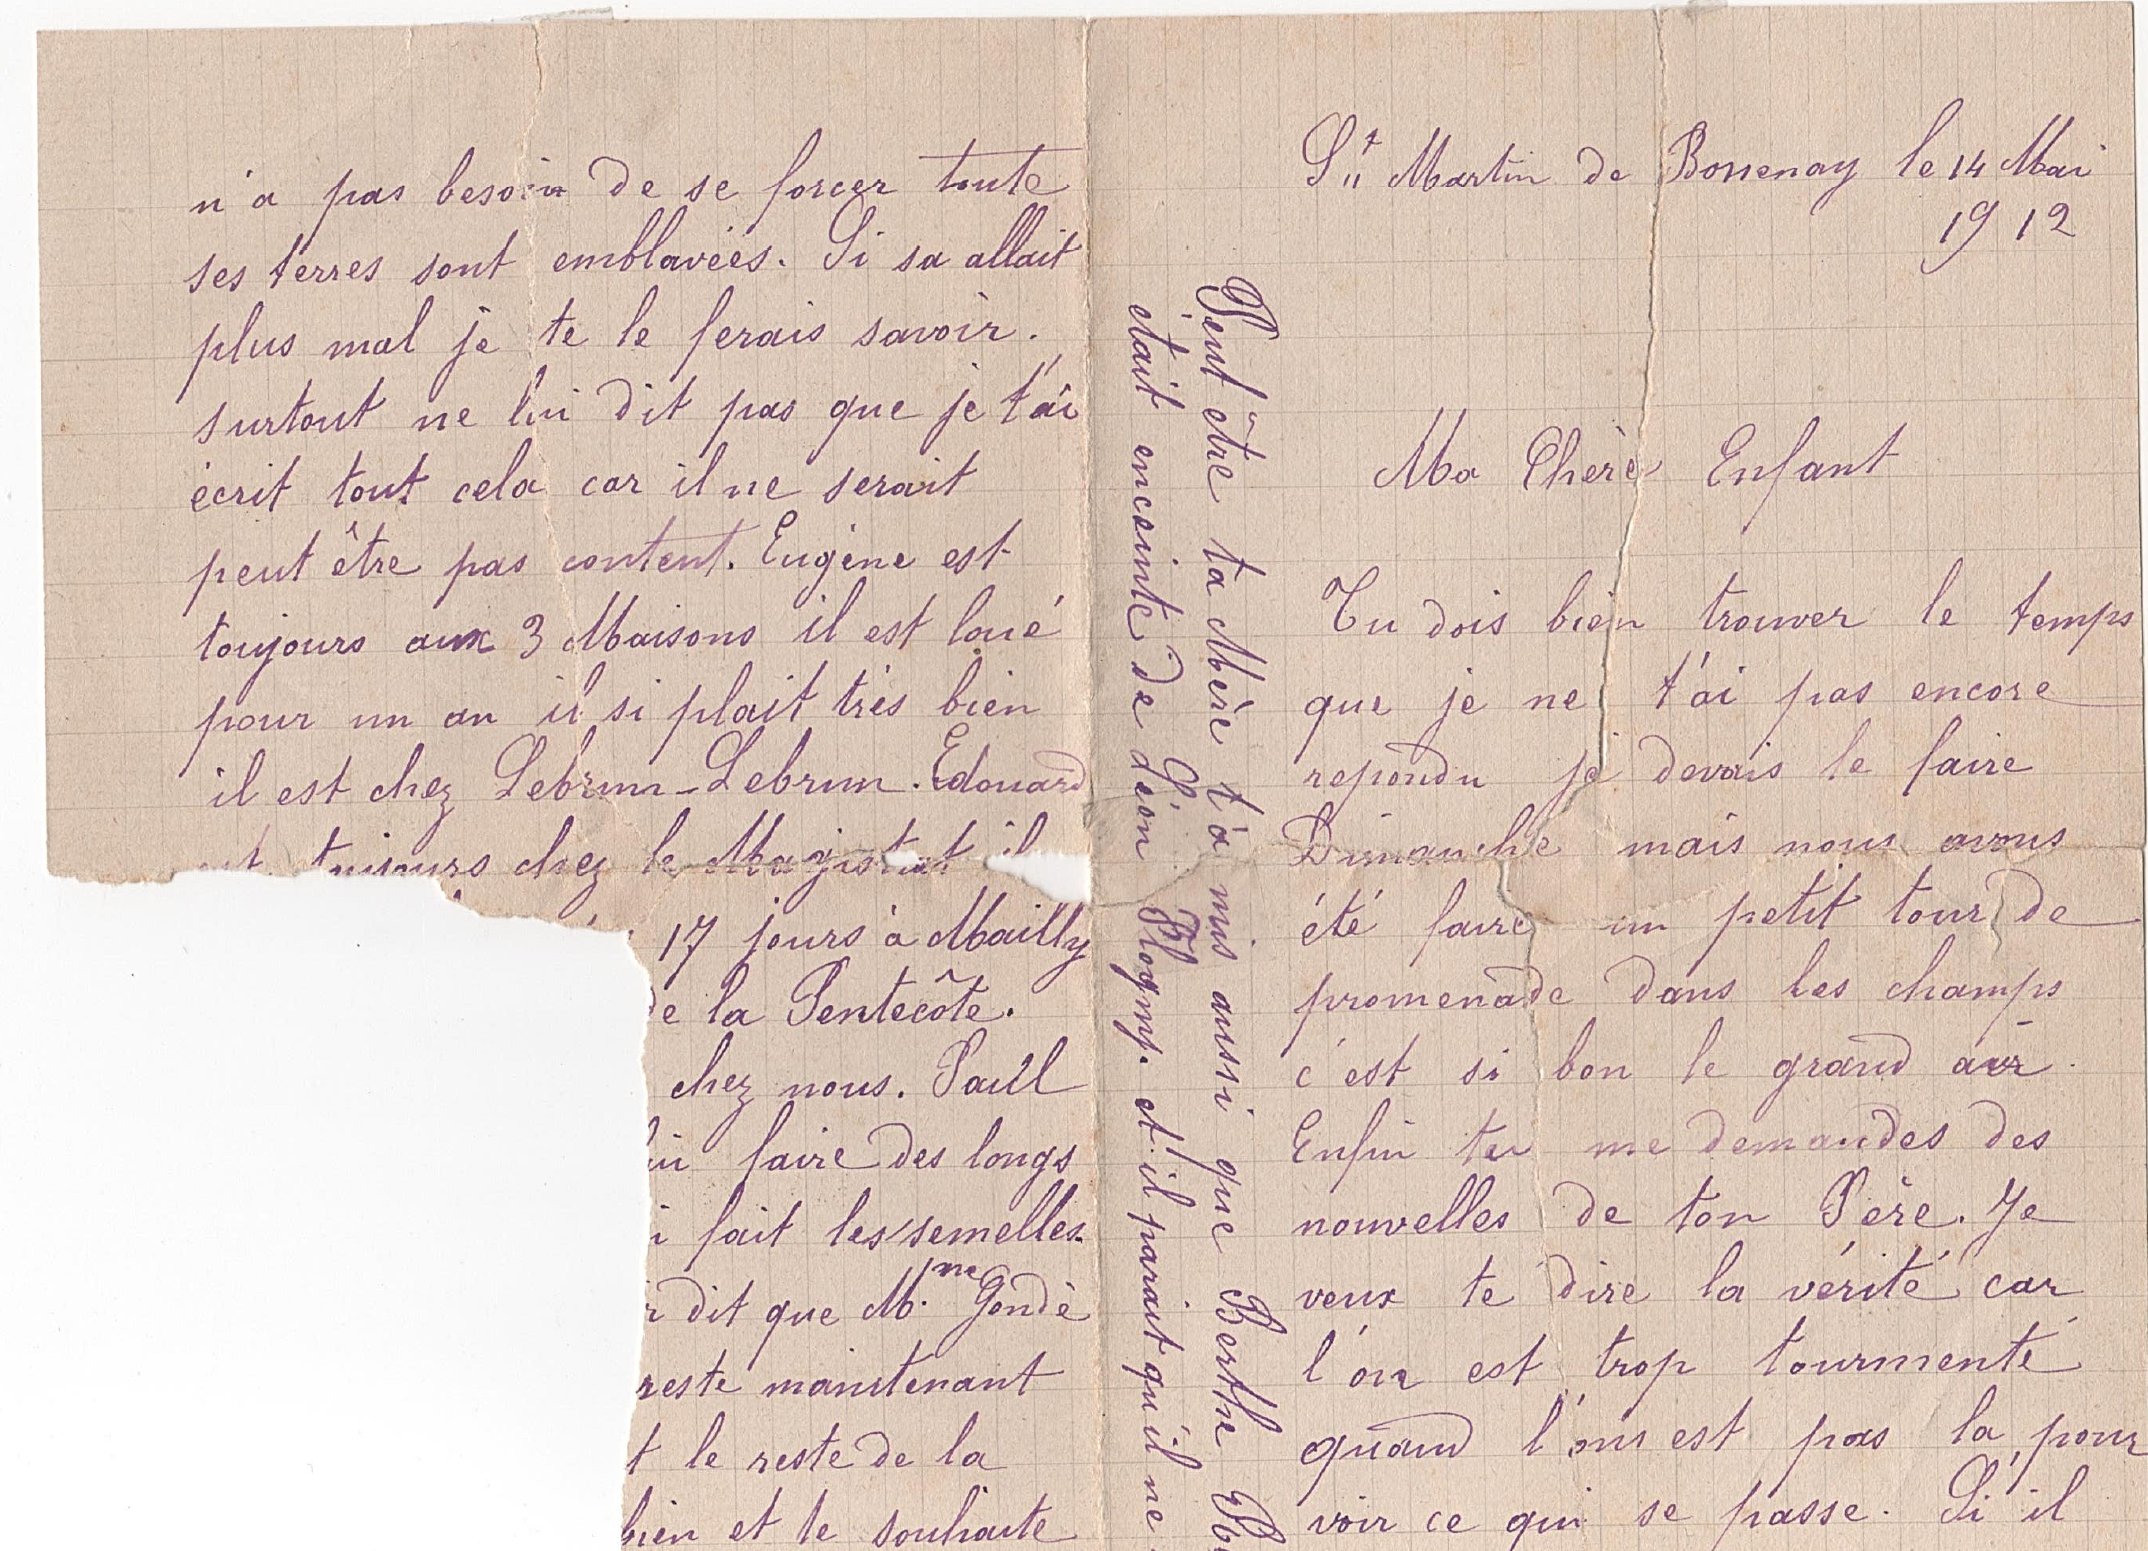 St Martin de Bossenay le 14 Mai
1912
Ma Chère Enfant
Tu dois bien trouver le temps
que je ne t'ai pas encore
repondu je devais le faire
Dimanche mais nous avons
été faire un petit tour de
promenade dans les champs
c'est si bon le grand air.
Enfin tu me demandes des
nouvelles de ton Père. Je
veux te dire la vérité car
l'on est trop tourmenté
quand l'on est pas la pour
voir ce qui se passe. Si il
n'a pas besoin de se forcer toute
ses terres sont emblavées. Si sa allait
plus mal je te le ferais savoir.
surtout ne lui dit pas que je t'ai
écrit tout cela car il ne serait
peut être pas content. Eugène est
toujours aux 3 Maisons il est loué
pour un an il si plait très bien
il est chez Lebrun-Lebrun. Edouard
toujours chez le Magistrat il
17 jours à Mailly
de la Pentecôte.
chez nous. Paul
faire des longs
fait les semelles
dit que Mme Gondé
reste maintenant
le reste de la
bien et te souhaite
Peut être ta Mère t'a mis aussi que Berthe
était enceinte de Léon et il parait qu'il ne